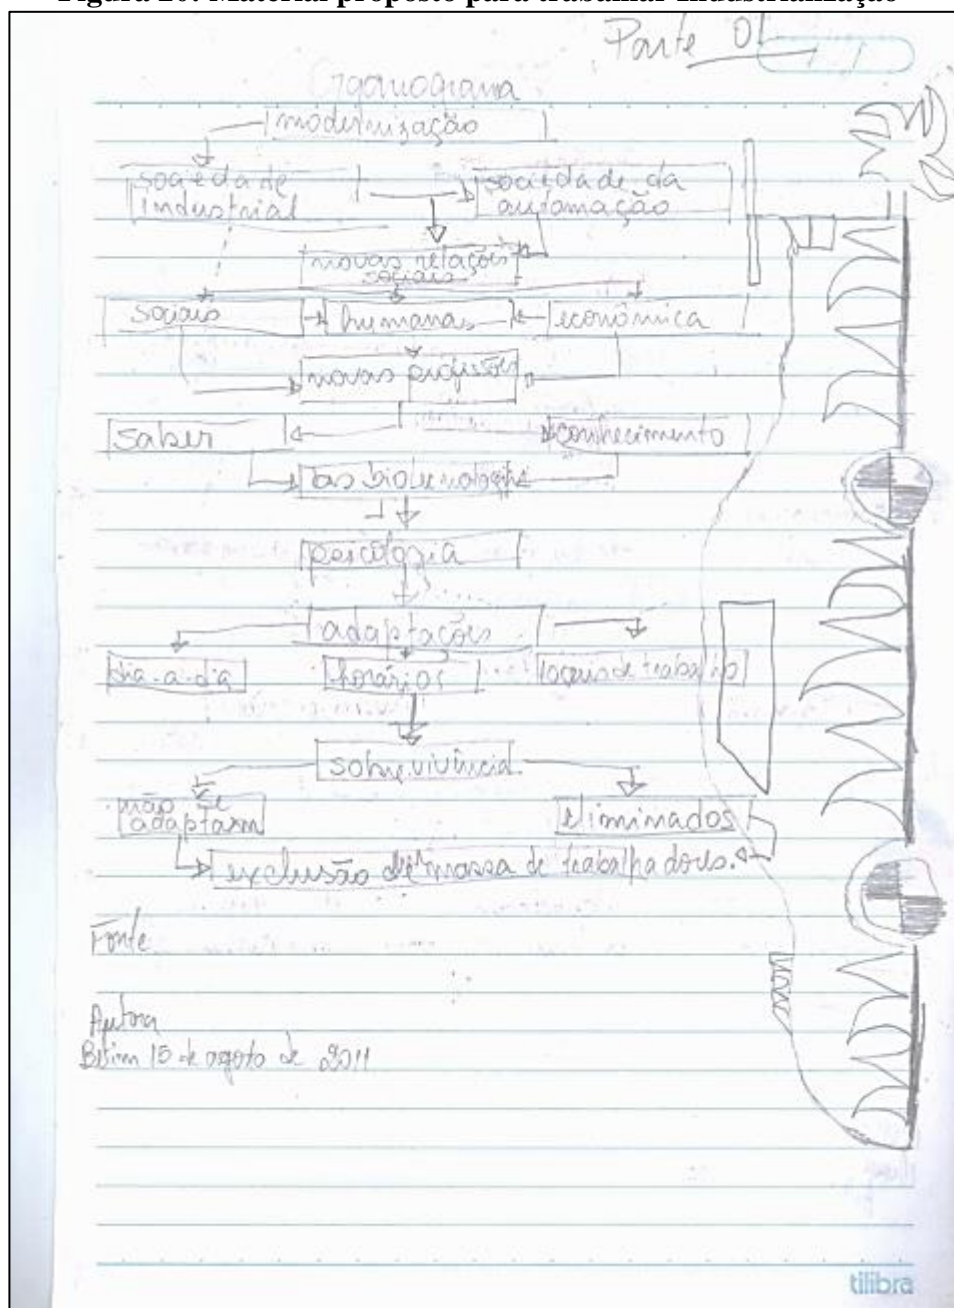 Figura 20: Material proposto para trabalhar Industrialização
Parte 01
Organograma
modernização
sociedade industrial
sociedade da automação
novas relações sociais
sociais
humanas
econômica
novas profissões
saber
conhecimento
as biotecnologi
adaptações
dia-a-dia
horários
locais de trabalho
sobrevivência
não se adaptam
eliminados
exclusão de massa de trabalhadores.
Fonte
Autora
Betim 15 de agosto de 2011
tilibra